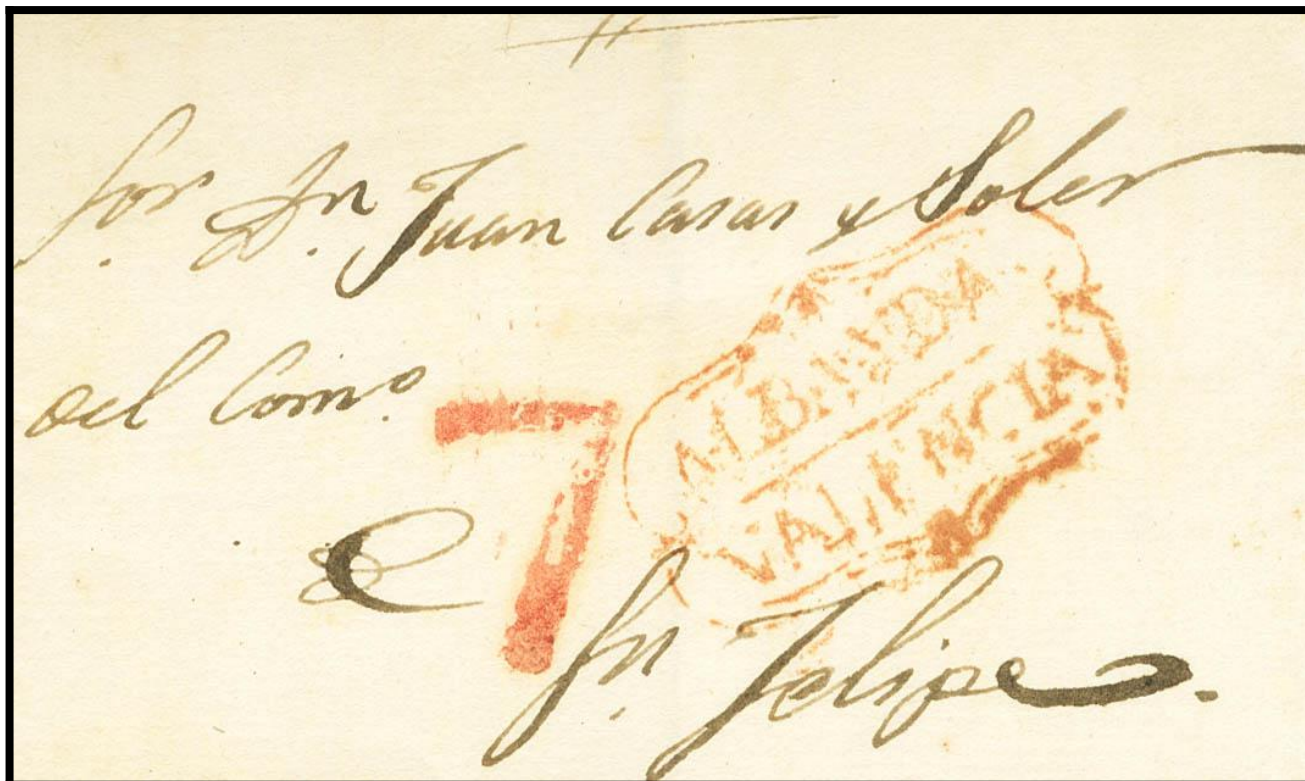 Sor. Dn. Juan Casas y Soler
del Como.
7
VALENCIA
Sn. Felipe.